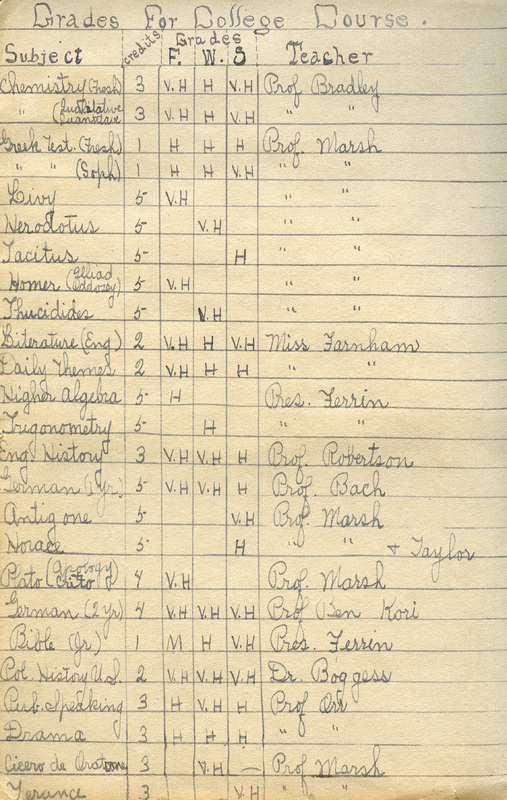 Grades For College Course.
Subject credits Grades F. W. S Teacher
Chemistry (Fresh) 3 V.H H V.H Prof Bradley
" (Qualitative Quantative 3 V.H H V.H " "
Greek Test. (Fresh) 1 H H H Prof. Marsh
" " (Soph) 1 H H V.H " "
Livy 5 V.H " "
Herodotus 5 V.H " "
Tacitus 5 H " "
Homer (Illiad Oddozey) 5 V.H " "
Thucidides 5 V.H " "
Literature (Eng) 2 V.H H V.H Miss Farnham
Daily Themes 2 V.H H H " "
Higher Algebra 5 H Pres. Ferrin
Trigonometry 5 H " "
Eng. History 3 V.H V.H H Prof. Robertson
German (1 yr) 5 V.H V.H H Prof. Bach
Antigone 5 V.H Prof. Marsh
Horace 5 H " " + Taylor
Plato (Apology Crito) 4 V.H Prof. Marsh
German (2 yr) 4 V.H V.H V.H Prof Ben Kori
Bible (Jr) 1 M H V.H Pres. Ferrin
Col. History U.S. 2 V.H V.H V.H Dr. Boggess
Pub. Speaking 3 H V.H H Prof Orr
Drama 3 H H H " "
Cicero de Oratore 3 V.H — Prof Marsh
Terance 3 V.H " "